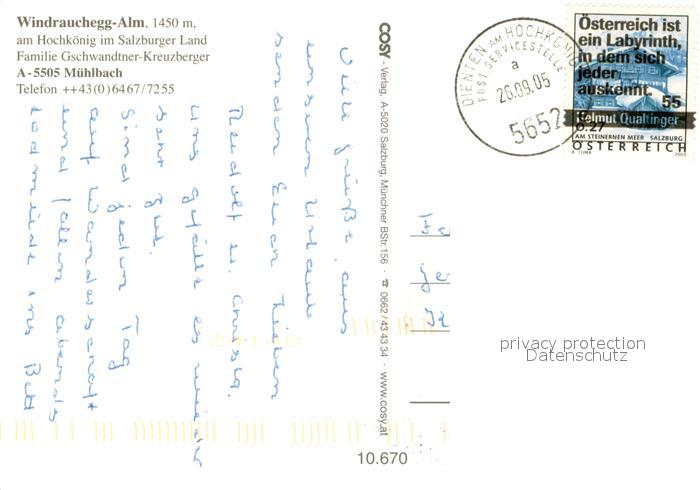 Windrauchegg-Alm, 1450 m,
am Hochkönig im Salzburger Land
Familie Gschwandtner-Kreuzberger
A - 5505 Mühlbach
Telefon ++43(0)6467/7255
Viele Grüße aus
unserem Urlaub
senden Euch Lieben
Rudolf u. Christa.
Uns gefällt es wieder
sehr gut.
Sind jeden Tag
auf Wanderschaft
und fallen abends
todmüde ins Bett
COSY - Verlag, A-5020 Salzburg, Münchner BStr.156 · ☎ 0662/43 43 34 · www.cosy.at
10.670
DIENTEN AM HOCHKÖNIG
POST.SERVICESTELLE
a
26.09.05
5652
Österreich ist
ein Labyrinth,
in dem sich
jeder
auskennt.
55
Helmut Qualtinger
0.27
AM STEINERNEN MEER SALZBURG
ÖSTERREICH
privacy protection
Datenschutz